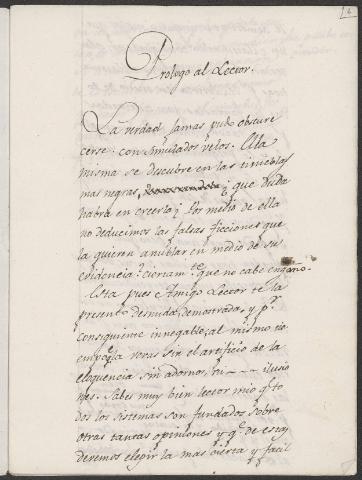 Prologo al Lector.
La verdad jamas pudo obscure
cerse con simulados velos. Ella
misma se descubre en las tinieblas
mas negras, ¿ que duda
habra en creerla? Por medio de ella
no deducimos las falsas ficciones que
la quieren añublar en medio de su
evidencia: ciertam.te que no cabe engaño.
Esta pues Amigo Lector te la
presento desnuda, demostrada, y p.r
consiguiente innegable; al mismo ti
empo la veras sin el artificio de la
eloquencia sin adornos, ni - - - ilusio
nes. Sabes muy bien lector mio q.e to
dos los sistemas son fundados sobre
otras tantas opiniones y q.e de estas
deremos elegir la mas cierta y facil